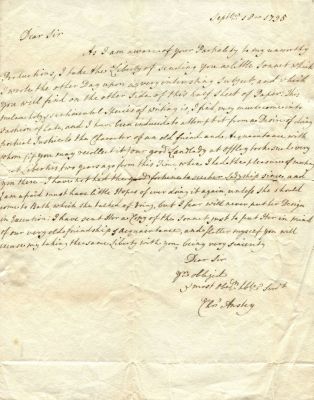 Septr. 18th 1795
Dear Sir
As I am aware of your Partiality to my unworthy
Productions, I take the Liberty of sending you a little Sonnet which
I wrote the other Day upon a very interesting Subject and which
you will find on the other side of this half Sheet of Paper. This
melancholy sentimental Species of writing is I find very much come into
Fashion of Late, and I have been induced to attempt it from a Desire of doing
poetical Justice to the Character of an old friend and Acquaintance with
whom you may recollect
about two years ago from this Time when I had the pleasure of meeting
you there. I have not had the good fortune to see her Ladyship since, and
I am afraid must have little Hopes of ever doing it again unless She should
come to Bath which she talked of doing, but I fear will never put her Design
in Execution. I have sent Her a Copy of the Sonnet just to put Her in mind
of our very old friendship & acquaintance, and flatter myself you will
excuse my taking the same Liberty with you, being very sincerely
Dear Sir
Yr. obliged
& most Hble. Servt.
Chr. Anstey